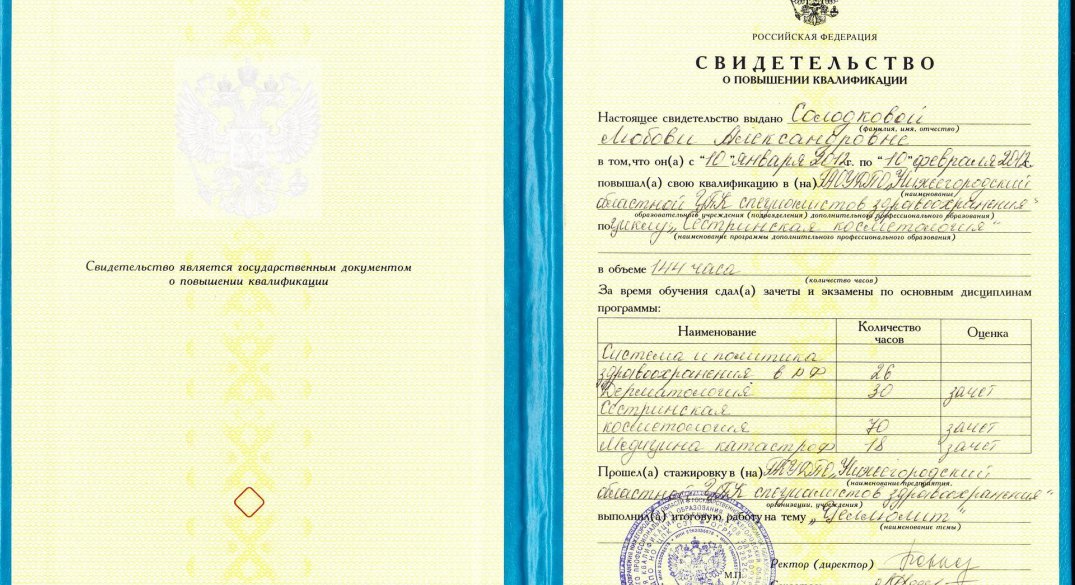 Свидетельство является государственным документом
о повышении квалификации
РОССИЙСКАЯ ФЕДЕРАЦИЯ
СВИДЕТЕЛЬСТВО
О ПОВЫШЕНИИ КВАЛИФИКАЦИИ
Настоящее свидетельство выдано Солодковой
(фамилия, имя, отчество)
Любови Александровне
в том, что он(а) с "10" января 2012 г. по "10" февраля 2012 г.
повышал(а) свою квалификацию в (на) ГАОУ ДПО „Нижегородский
(наименование
областной ЦПК специалистов здравоохранения"
образовательного учреждения (подразделения) дополнительного профессионального образования)
по циклу „Сестринская косметология"
(наименование программы дополнительного профессионального образования)
в объеме 144 часа
(количество часов)
За время обучения сдал(а) зачеты и экзамены по основным дисциплинам
программы:
Наименование Количество часов Оценка
Система и политика
здравоохранения в РФ 26
Дерматология 30 зачет
Сестринская
косметология 70 зачет
Медицина катастроф 18 зачет
Прошел(а) стажировку в (на) ГАОУ ДПО „Нижегородский
(наименование предприятия,
областной ЦПК специалистов здравоохранения"
организации, учреждения)
выполнил(а) итоговую работу на тему „Целлюлит"
(наименование темы)
Ректор (директор)
М.П.